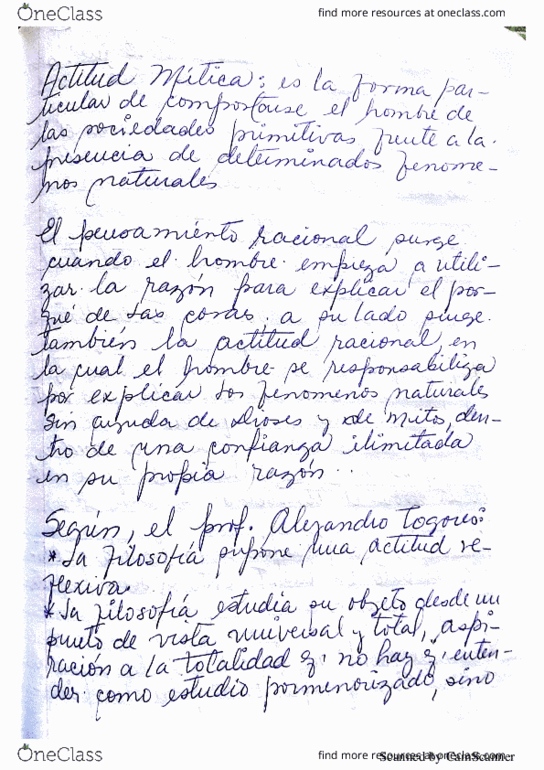 OneClass
find more resources at oneclass.com
Actitud Mítica: es la forma par-
ticular de comportarse el hombre de
las sociedades primitivas frente a la
presencia de determinados fenome-
nos naturales
El pensamiento racional surge
cuando el hombre empieza a utili-
zar la razón para explicar el por-
qué de las cosas. a su lado surge
también la actitud racional, en
la cual el hombre se responsabiliza
por explicar los fenomenos naturales
sin ayuda de Dioses y de mito, den-
tro de una confianza ilimitada
en su propia razón..
Según, el prof. Alejandro
* La Filosofía supone una actitud re-
flexiva.
* La Filosofía estudia su objeto desde un
punto de vista universal y total, aspi-
ración a la totalidad q' no hay q' enten-
der como estudio pormenorizado, sino
OneClass
find more resources at oneclass.com
Scanned by CamScanner